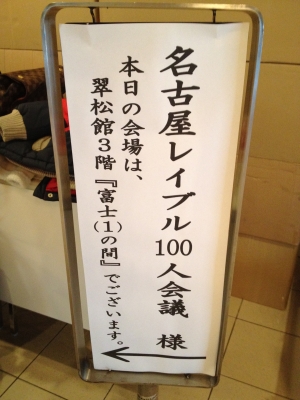 名古屋レイブル100人会議 様
本日の会場は、
翠松館3階『富士(1)の間』でございます。